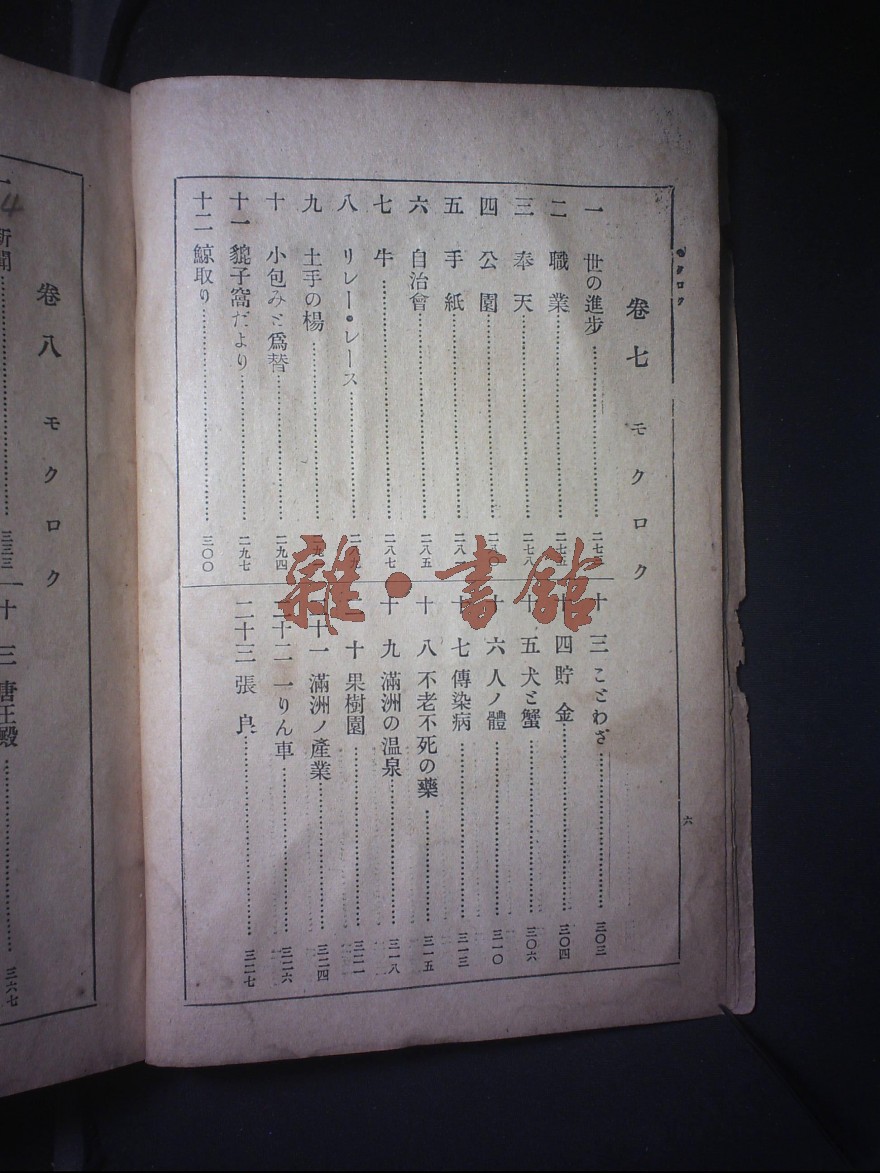 モクロク
卷七 モクロク
一 世の進步
二 職業
三 奉天 二七八
四 公園
五 手紙
六 自治會 二八五
七 牛 二八七
八 リレー・レース
九 土手の楊
十 小包みと爲替 二九四
十一 貔子窩だより 二九七
十二 鯨取り 三〇〇
十三 ことわざ 三〇三
十四 貯金 三〇四
十五 犬と蟹 三〇六
十六 人ノ體 三一〇
十七 傳染病 三一三
十八 不老不死の藥 三一五
十九 滿洲の溫泉 三一八
二十 果樹園 三二一
二十一 滿洲ノ產業 三二四
二十二 一りん車 三二六
二十三 張良 三二七
六
卷八 モクロク
一 新聞 三三三
十三 唐王殿 三六七
4
雜·書館